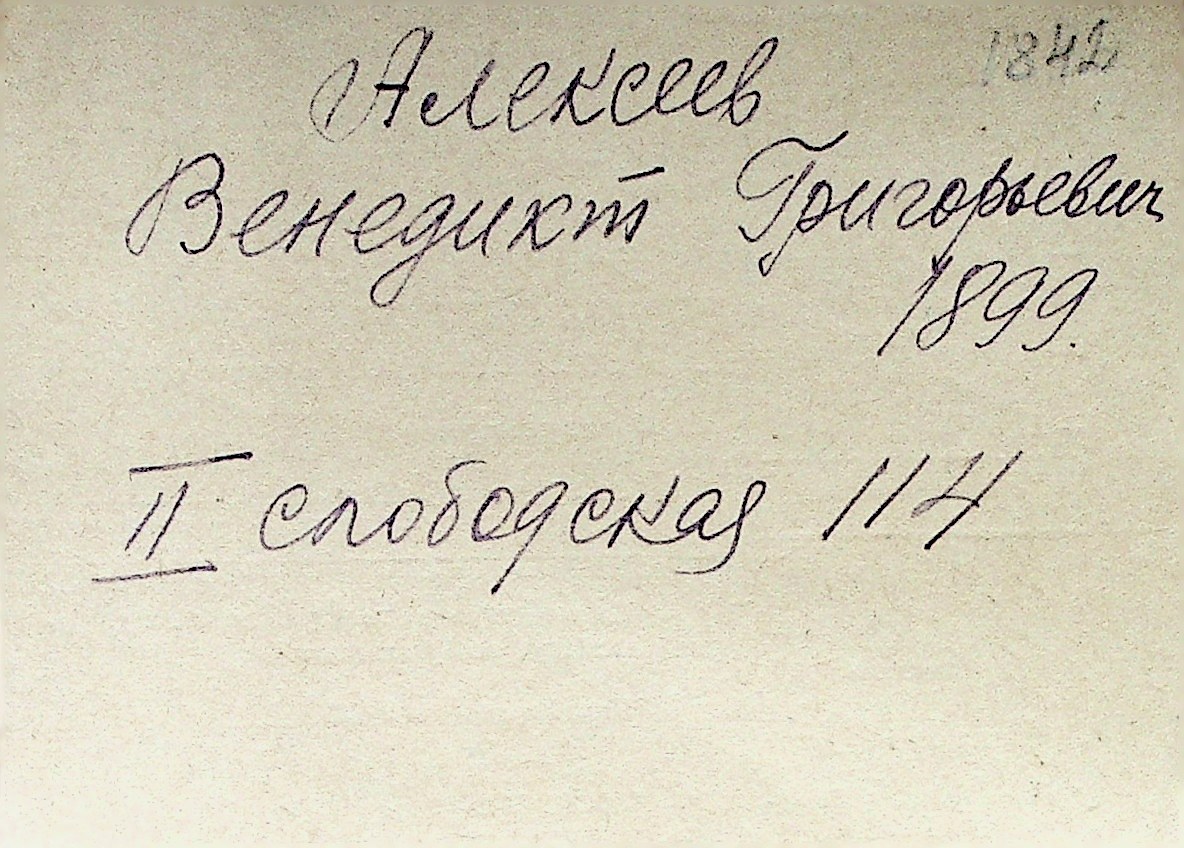 1842
Алексеев
Венедикт Григорьевич
1899.
II слободская 114